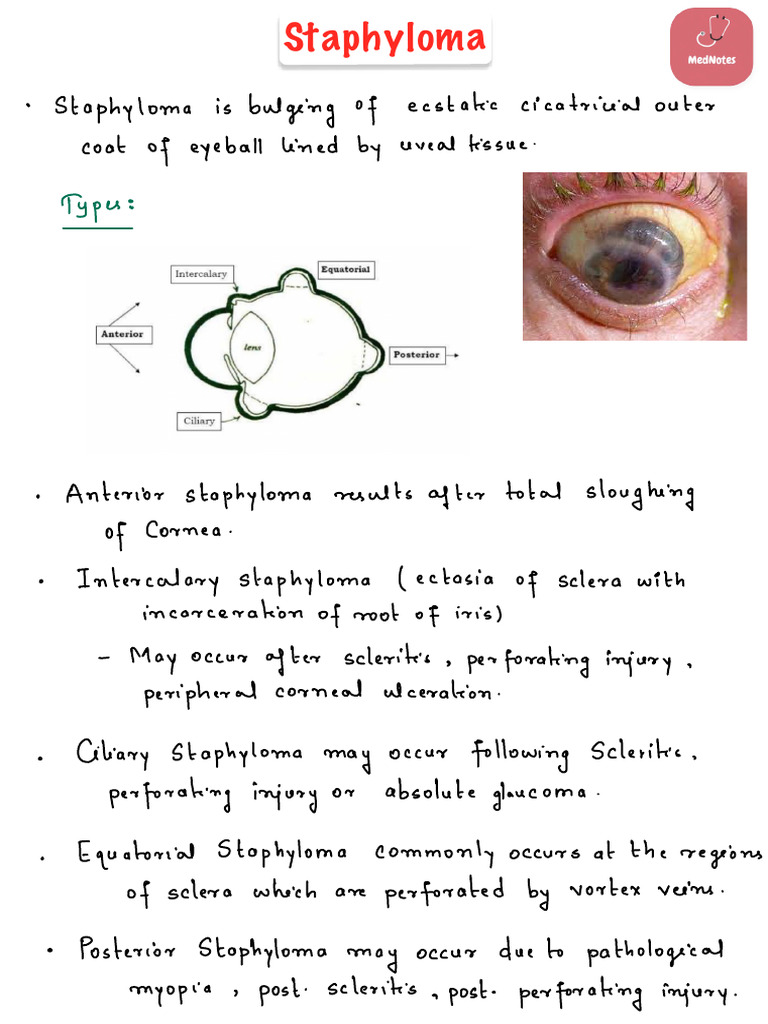 Staphyloma
MedNotes
• Staphyloma is bulging of ecstatic cicatricial outer
coat of eyeball lined by uveal tissue.
Types:
Intercalary
Equatorial
Anterior
lens
Posterior
Ciliary
• Anterior staphyloma results after total sloughing
of Cornea.
• Intercalary staphyloma (ectasia of sclera with
incarceration of root of iris)
– May occur after scleritis, perforating injury,
peripheral corneal ulceration.
• Ciliary Staphyloma may occur following Scleritis,
perforating injury or absolute glaucoma.
• Equatorial Staphyloma commonly occurs at the regions
of sclera which are perforated by vortex veins.
• Posterior Staphyloma may occur due to pathological
myopia, post. scleritis, post. perforating injury.